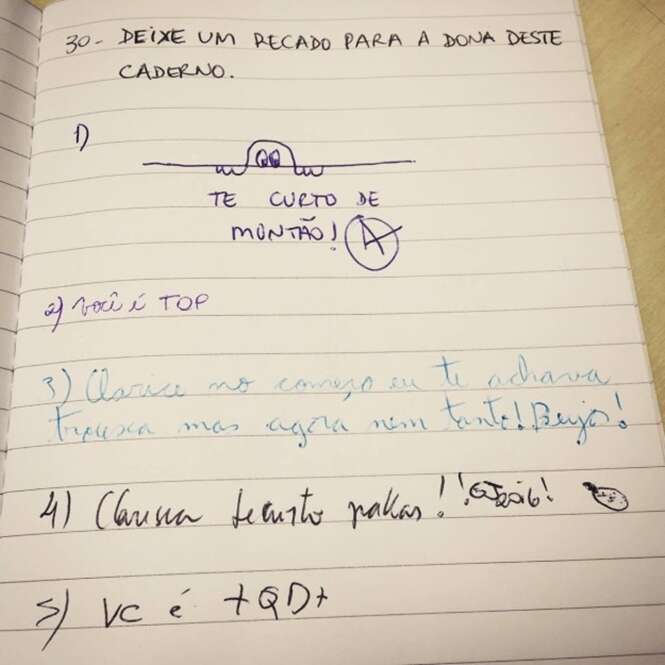 30- DEIXE UM RECADO PARA A DONA DESTE
CADERNO.
1)
TE CURTO DE
MONTÃO! A
2) você é TOP
3) Clarice no começo eu te achava
trouxa mas agora nem tanto! Beijo!
4) Clarice te curto pakas!!
5) VC é +QD+